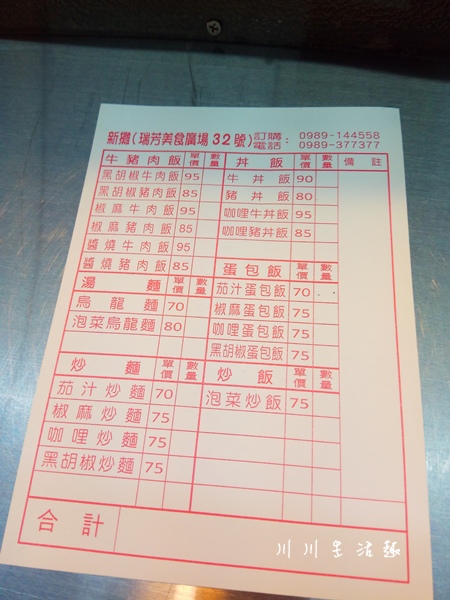 新攤(瑞芳美食廣場 32 號) 訂購電話: 0989-144558
0989-377377
牛豬肉飯 單價 數量 丼飯 單價 數量 備註
黑胡椒牛肉飯 95 牛丼飯 90
黑胡椒豬肉飯 85 豬丼飯 80
椒麻牛肉飯 95 咖哩牛丼飯 95
椒麻豬肉飯 85 咖哩豬丼飯 85
醬燒牛肉飯 95
醬燒豬肉飯 85 蛋包飯 單價 數量
湯麵 單價 數量 茄汁蛋包飯 70
烏龍麵 70 椒麻蛋包飯 75
泡菜烏龍麵 80 咖哩蛋包飯 75
黑胡椒蛋包飯 75
炒麵 單價 數量 炒飯 單價 數量
茄汁炒麵 70 泡菜炒飯 75
椒麻炒麵 75
咖哩炒麵 75
黑胡椒炒麵 75
合計
川川生活趣